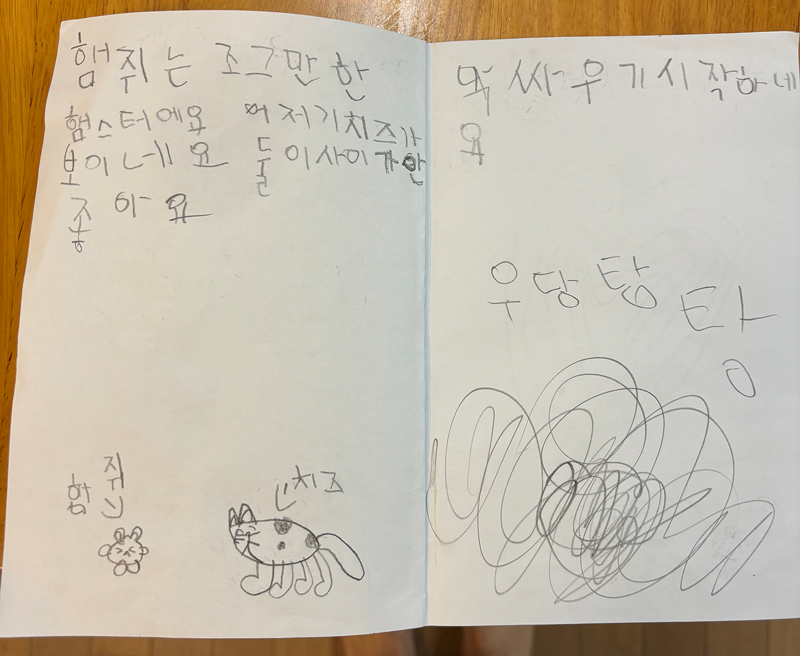 햄쥐는 조그만한
햄스터에요 어저기치즈가
보이네요 둘이사이가안
좋아요
햄쥐
치즈
막싸우기시작하네
요
우당탕탕